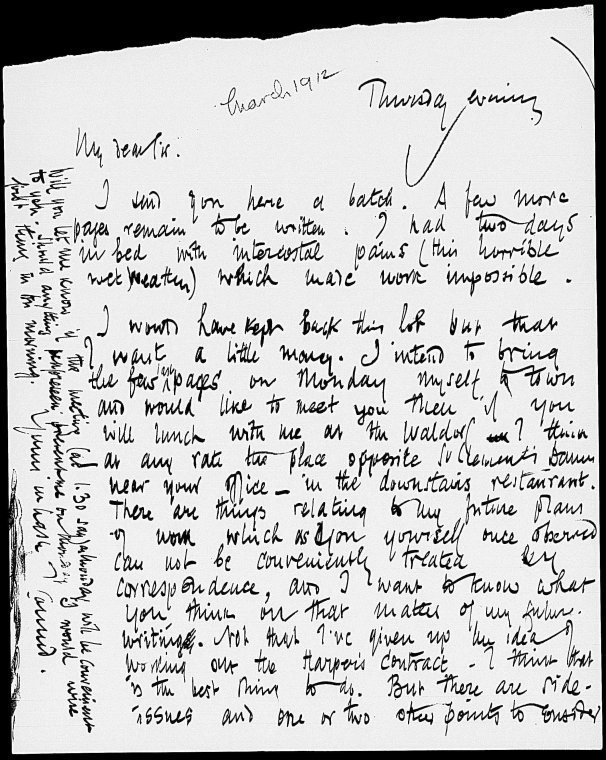 March 1912
Thursday evening
My dear Sir.
I send you here a batch. A few more
pages remain to be written. I had two days
in bed with intercostal pains (this horrible
wet weather) which made work impossible.
I would have kept back this lot but that
I want a little money. I intend to bring
the few last pages on Monday myself to town
and would like to meet you then if you
will lunch with me at the Waldorf I think
at any rate the place opposite St Clements Danes
near your office — in the downstairs restaurant.
There are things relating to my future plans
of work which as you yourself once observed
can not be conveniently treated by
correspondence, and I want to know what
you think on that matter of my future
writings. Not that I've given up the idea of
working out the Harper's contract - I think that
is the best thing to do. But there are side-
issues and one or two other points to consider
Will you let me know if the meeting (at 1.30 say) Monday will be convenient
to you. Should anything prevent me on Monday I would wire
first thing in the morning. Yours in haste J Conrad.